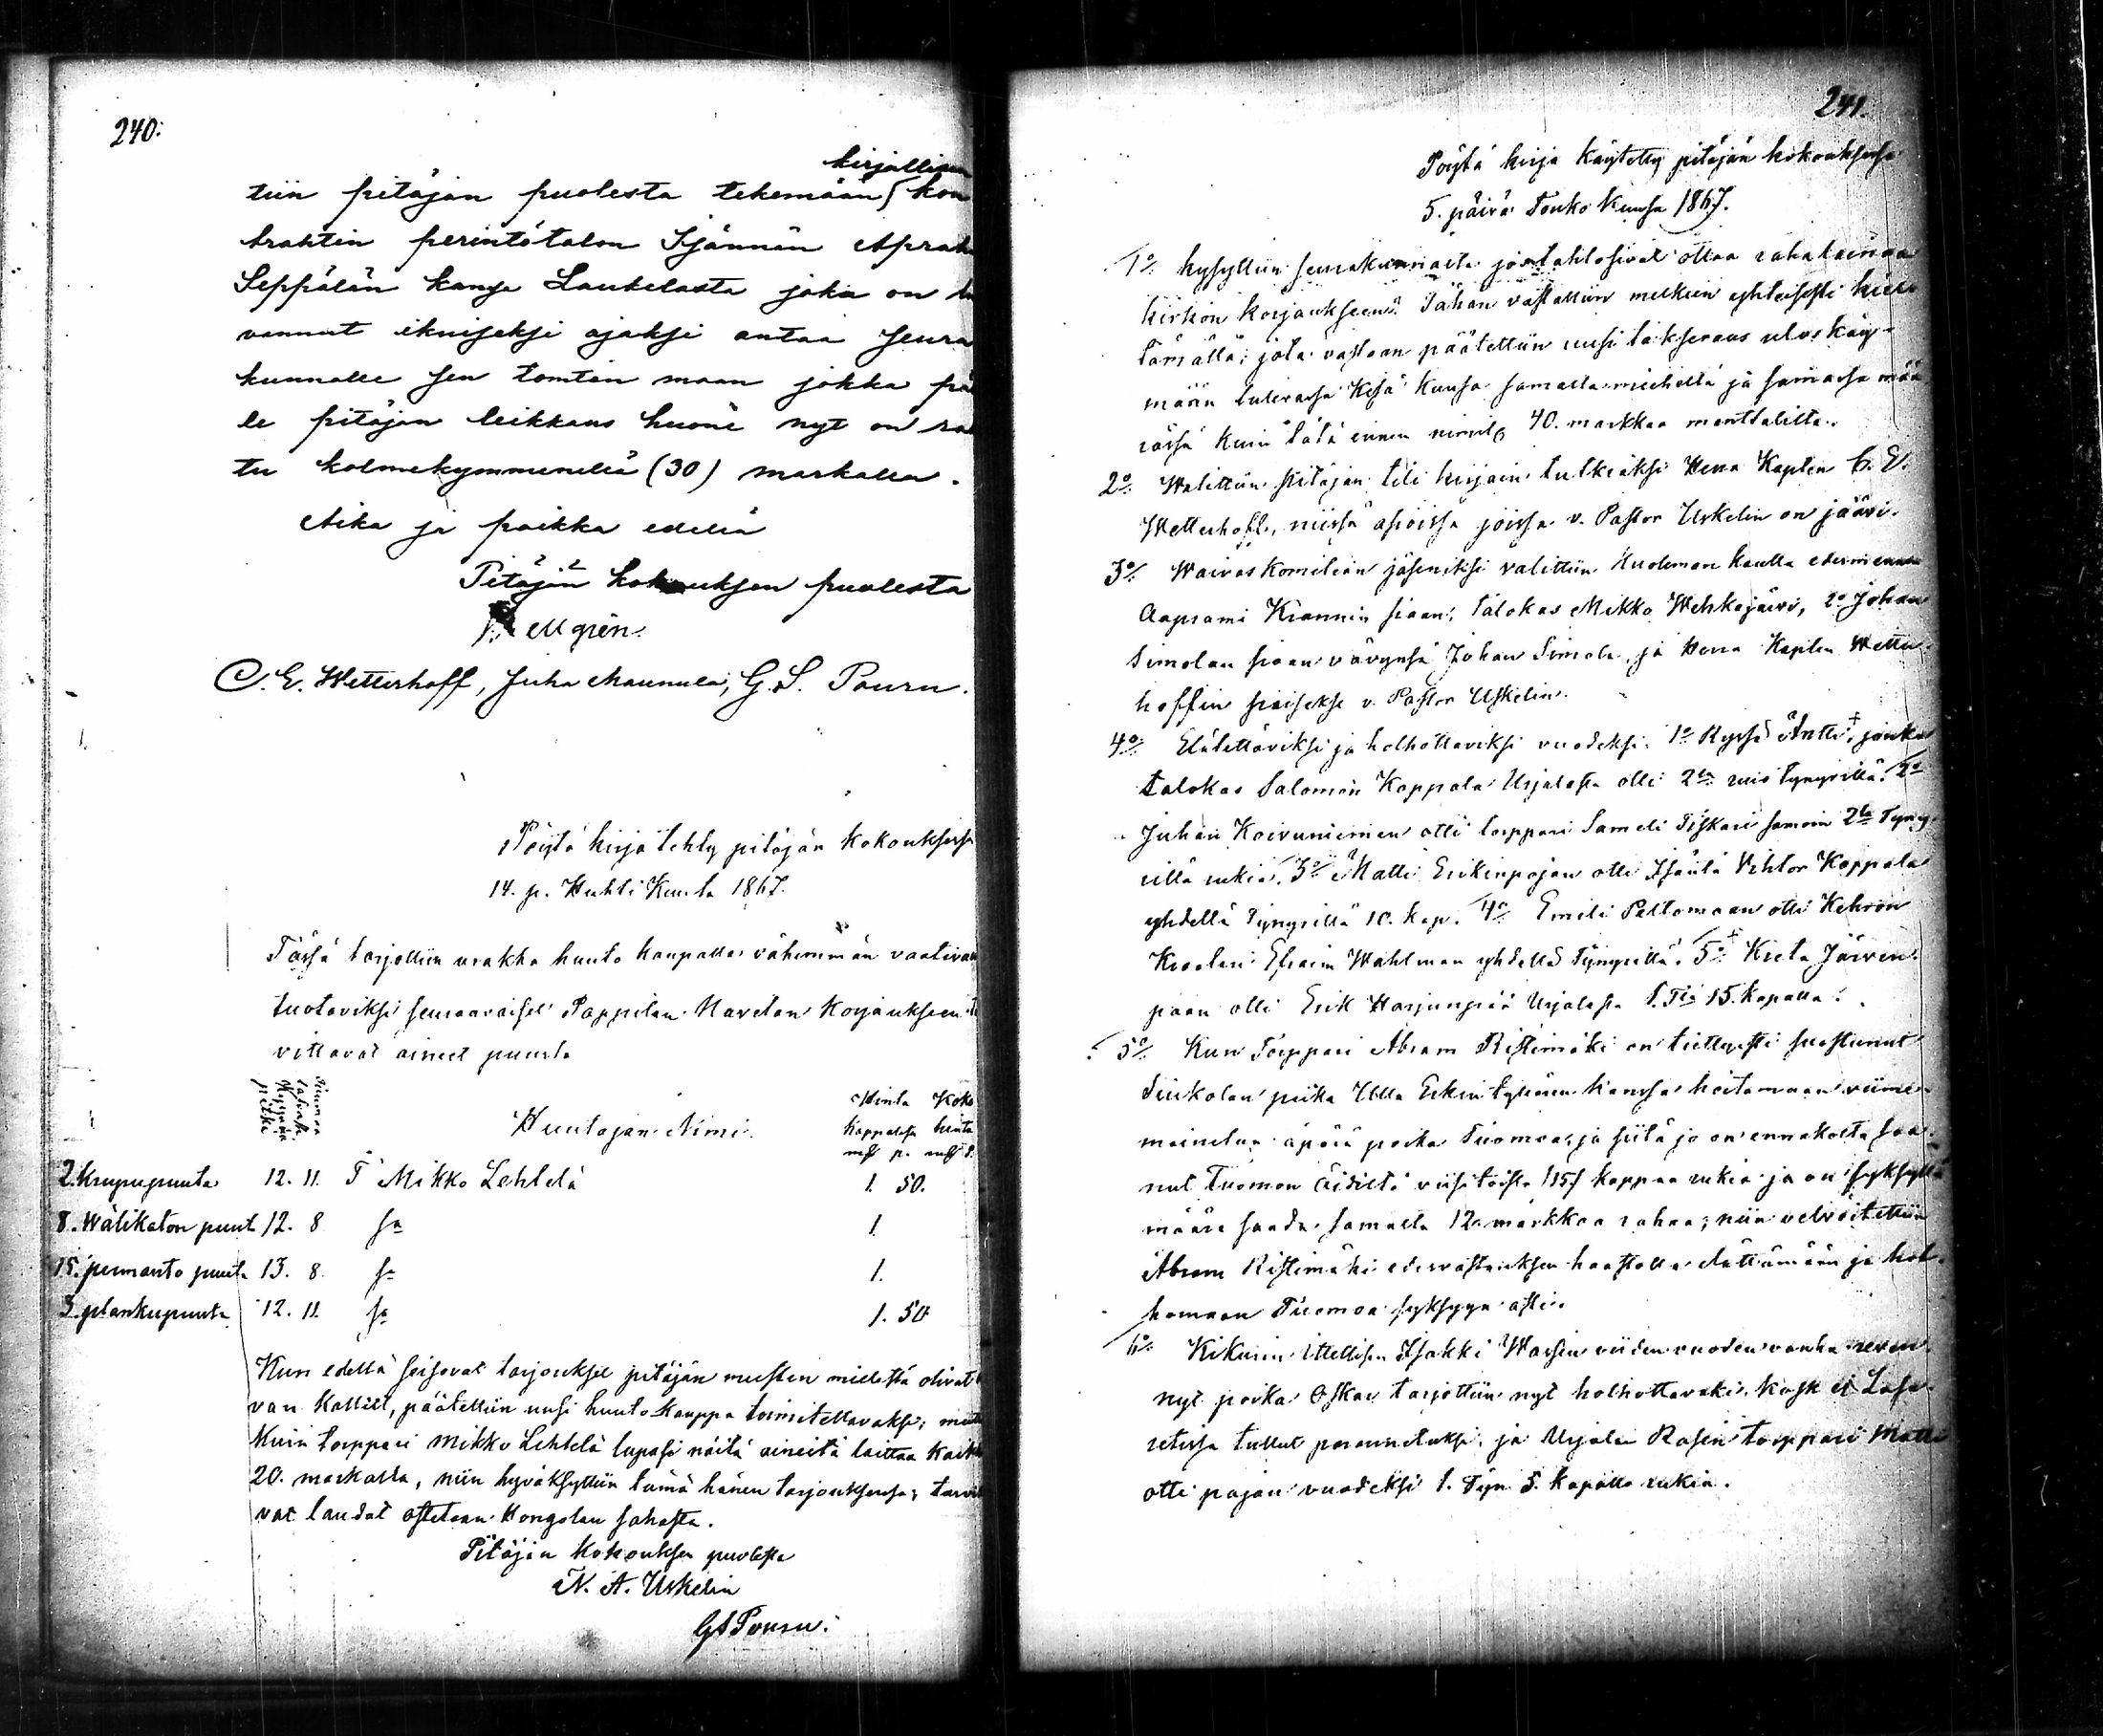 240.
kirjallisen
tiin pitäjän puolesta tekemään kon
trahtin perintötalon Isännän Aprah
Seppälän kanssa Laukelasta joka on lu
vannut ikuiseksi ajaksi antaa seura
kunnalle sen tomtin maan jokka pää
le pitäjän leikkaus huone nyt on ra
tu kolmekymmenellä (30) markalla.
Aika ja paikka edellä
Pitäjän kokouksen puolesta
ellgrén.
C. E. Wetterhoff, Juha Maunula, G. S. Pouru.
Pöytä kirja tehty pitäjän kokouksessa
14. p. Huhti Kuuta 1867.
Tässä tarjottiin urakka huuto kaupalla vähemmän vaativan
tuotaviksi seuraavaiset Pappilan Navetan Korjaukseen ta
vittavat aineet puusta
Huutajan Nimi.
Hinta Koko
kappalesta hinta
mk p. mk p.
2. kruupupuuta 12. 11. T Mikko Lehtelä 1. 50.
8. Wälikaton puut 12. 8 sa 1.
15. permanto puuta 13. 8. sa 1.
3. plankupuuta 12. 11. sa 1. 50
Kun edellä seisovat tarjoukset pitäjän miesten mielestä olivat
van kalliit, päätettiin uusi huuto kauppa toimitettavaksi; mutta
Kuin torppari Mikko Lehtelä lupasi näitä aineita laittaa kaikki
20. markalla, niin hyväksyttiin tämä hänen tarjouksensa; tarvit
vat laudat ostetaan Hongolan sahasta.
Pitäjän Kokouksen puolesta
N. A. Uskelin
GS Pouru.
241.
Pöytä kirja käytetty pitäjän kokouksessa
5. päivä Touko Kuussa 1867.
1o kysyttiin seurakunnasta jos tahtosivat ottaa rahalainaa
kirkon korjaukseen? Tähän vastattiin melkein yhteisesti kiel
tämällä; jota vastaan päätettiin uusi takseraus ulos käy-
mään tulevassa Kesä Kuussa samalla miehellä ja samassa mää
rässä kuin tätä ennen nimit. 40. markkaa manttalilta.
2o Walittiin pitäjän tili kirjain tutkiaksi Herra Kaptein C. E.
Wetterhoff, niissä asioissa joissa v. Pastor Uskelin on jäävi.
3o Waivas Komitean jäseniksi valittiin kuoleman kautta edesmennen
Aaprami Krannin siaan, talokas Mikko Wehkajärvi, 2o Johan
Simolan siaan vävynsä Johan Simola, ja Herra Kaptein Wetter-
hoffin siaiseksi v. Pastor Uskelin.
4o Elätettäviksi ja holhottaviksi vuodeksi. 1o Ryssä Antti, jonka
talokas Salomon Kappala Urjalasta otti 2lla ruis tynyrillä. 2o
Juhan Koivuniemen otti torppari Sameli Piskari samoin 2lla Tyny-
rillä rukia. 3o Matti Erikinpojan otti Isäntä Vihtor Kappala
yhdellä Tynyrillä 10. kap. 4o Emili Peltomaan otti Kehron
Kraatari Efraim Wahlman yhdellä Tynyrillä. 5o Kreta Järven
pään otti Erik Harjunpää Urjalasta 1. Tlä 15. kapalla.
5o Kun Torppari Abram Ristimäki on tiettyästi suostunut
Siukolan piika Ulla Erkin tyttären kanssa hoitamaan viimen
mainitun äpärä poika Tuomas, ja siitä jo on ennakolta saa-
nut Tuomon äidiltä viisitoista /15/ kappaa rukia ja on syksyllä
määrä saada samalta 12 markkaa rahaa; niin velvoitettiin
Abram Ristimäki edesvastauksen haastolla elättämään ja hol-
homaan Tuomoa syksyyn asti.
6o Kikurin ittellisen Isakki Warsin viiden vuoden vanha
nyt poika Oskar tarjottiin nyt holhottavaksi, kosk ei Lasa-
retissa tullut parannetuksi, ja Urjalan Rasin torppari Matti
otti pojan vuodeksi 1. Tyn 5. kapalla rukia.